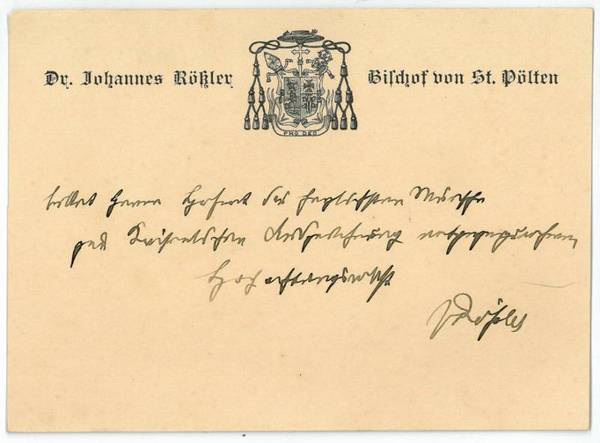 Dr. Johannes Rößler Bischof von St. Pölten
PRO DEO
bittet Herrn Hofrat die herzlichsten Wünsche
zur Kaiserlichen Auszeichnung entgegenzunehmen
Hochachtungsvollst
Rößler